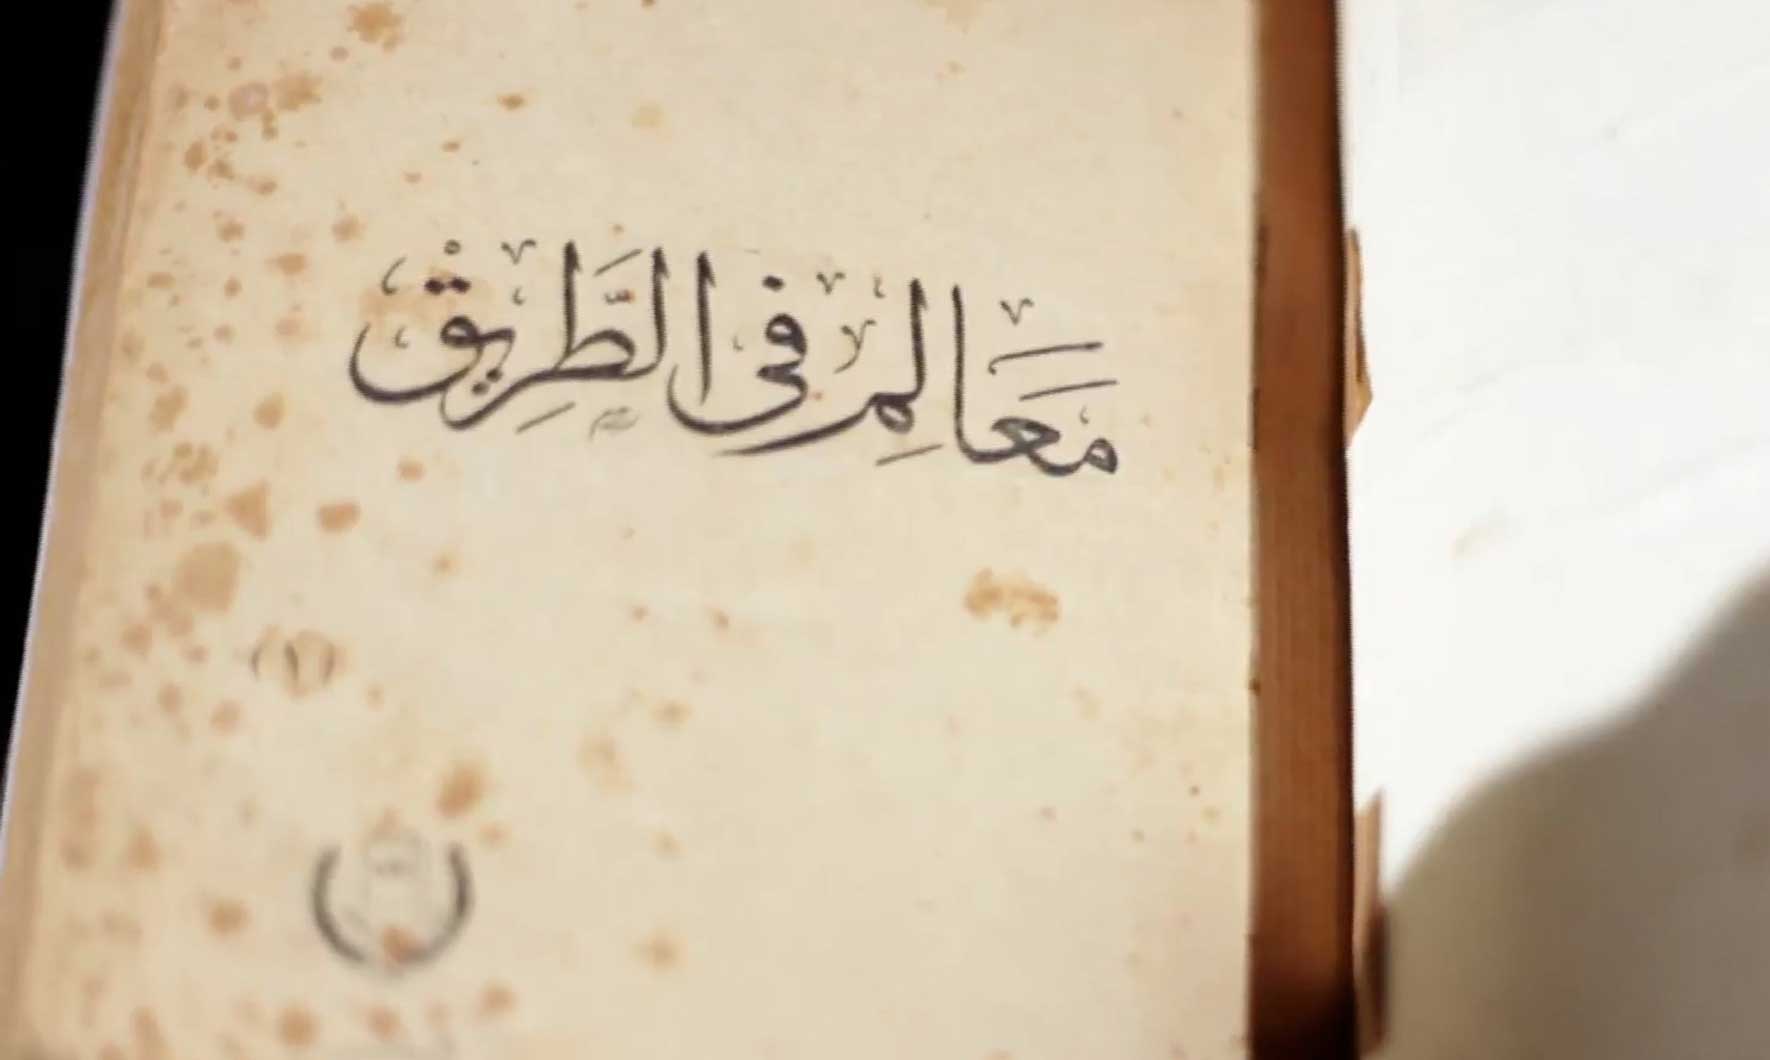 مَعَالِم في الطَّرِيقْ
(١)